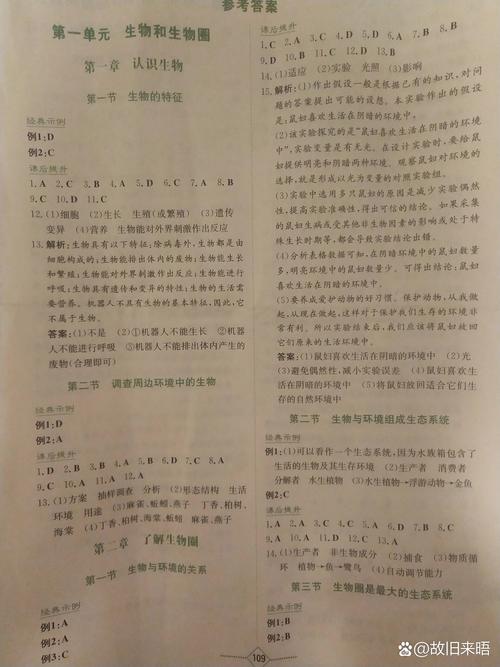 参考答案
第一单元 生物和生物圈
第一章 认识生物
第一节 生物的特征
经典示例
例1:D
例2:C
课后提升
1. A 2. C 3. B 4. A 5. D 6. C 7. A 8. B
9. C 10. D 11. C
12. (1)细胞 (2)生长 生殖(或繁殖) (3)遗传
变异 (4)营养 生物能对外界刺激作出反应
13. 解析:生物具有以下特征:除病毒外,生物都是由
细胞构成的;生物能排出体内的废物;生物能生长
和繁殖;生物能对外界刺激作出反应;生物能进行
呼吸;生物具有遗传和变异的特性;生物的生活需
要营养。机器人不具有生物的基本特征,因此,它
不属于生物。
答案:(1)不是 (2)①机器人不能生长 ②机器
人不能进行呼吸 ③机器人不能排出体内产生的
废物(合理即可)
第二节 调查周边环境中的生物
经典示例
例1:D
例2:A
课后提升
1. D 2. B 3. B 4. A 5. B 6. D 7. B 8. A
9. D 10. B 11. A 12. A
13. (1)方案 抽样调查 分析 (2)形态结构 生活
环境 用途 (3)麻雀、蚯蚓、燕子 丁香、柏树、
海棠 (4)丁香、柏树、海棠、蚯蚓 麻雀、燕子
第二章 了解生物圈
第一节 生物与环境的关系
经典示例
例1:A
例2:A
例3:C
课后提升
1. C 2. A 3. C 4. B 5. C 6. B 7. B 8. C
9. D 10. B 11. C 12. D 13. B
14. (1)适应 (2)实验 光照 (3)影响
15. 解析:(1)作出假设一般是根据已有的知识,对问
题的答案提出可能的设想。本实验作出的假设
是:鼠妇喜欢生活在阴暗的环境中。
(2)该实验探究的是“鼠妇喜欢生活在阴暗的环境
中”,实验变量是有无光。在设计实验时,要给鼠
妇提供明亮和阴暗两种环境。观察鼠妇对环境的
选择,就是形成以光为变量的对照实验组。
(3)实验中选用多只鼠妇的原因是减少实验偶然
性,提高实验准确性,得出可信的结论。如果采集
的鼠妇生病或受其他非生物因素的影响或处于特
殊生长时期等,都会导致实验结论出错。
(4)分析表格数据可知,在阴暗环境中的鼠妇数量
多,明亮环境中的鼠妇数量少。可得出结论:鼠妇
喜欢生活在阴暗的环境中。
(5)要养成爱护动物的好习惯。保护动物,从我做
起,从现在做起,这样对于保护我们生存的环境非
常有利。所以实验结束后,我们应该将鼠妇放回
它们原来的生活环境中。
答案:(1)鼠妇喜欢生活在阴暗的环境中 (2)光
(3)避免偶然性,减小实验误差 (4)鼠妇喜欢生
活在阴暗的环境中 (5)将鼠妇放回适合它们生
存的自然环境中
第二节 生物与环境组成生态系统
经典示例
例1:(1)可以看作一个生态系统,因为水族箱包含了
生活的生物及其生存环境 (2)生产者 消费者
分解者 水生植物 (3)水生植物→浮游动物→金鱼
例2:C
课后提升
1. A 2. A 3. C 4. C 5. D 6. D 7. B 8. C
9. A 10. A 11. D 12. C 13. A
14. (1)生产者 非生物成分 (2)捕食 (3)物质循
环 植物→鱼→鹭鸟 (4)自动调节能力
第三节 生物圈是最大的生态系统
经典示例
例1:B
例2:B
109
@故旧来晤